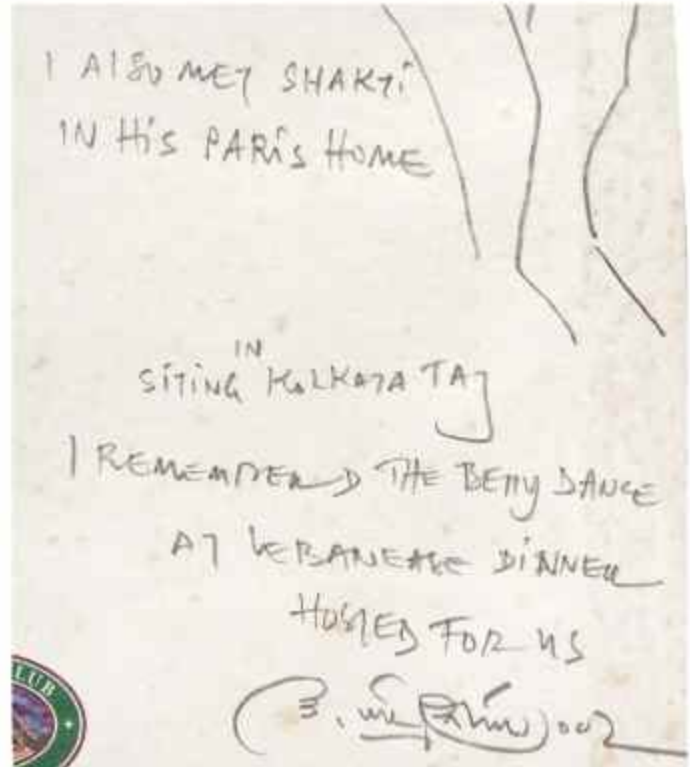 I AlSO MET SHAKTi
IN HiS PARiS HOME
IN
SiTiNG KOLKATA TAJ
I REMEMBERED THE BElly DANCE
AT LEBANEASE DiNNER
HOSTED FOR US
LUB